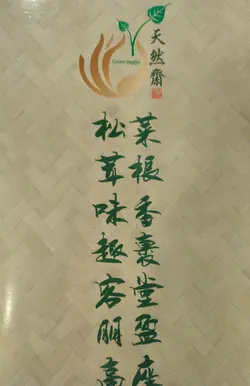 天然齋
菜根香裏堂盈座
松茸味趣客朋高